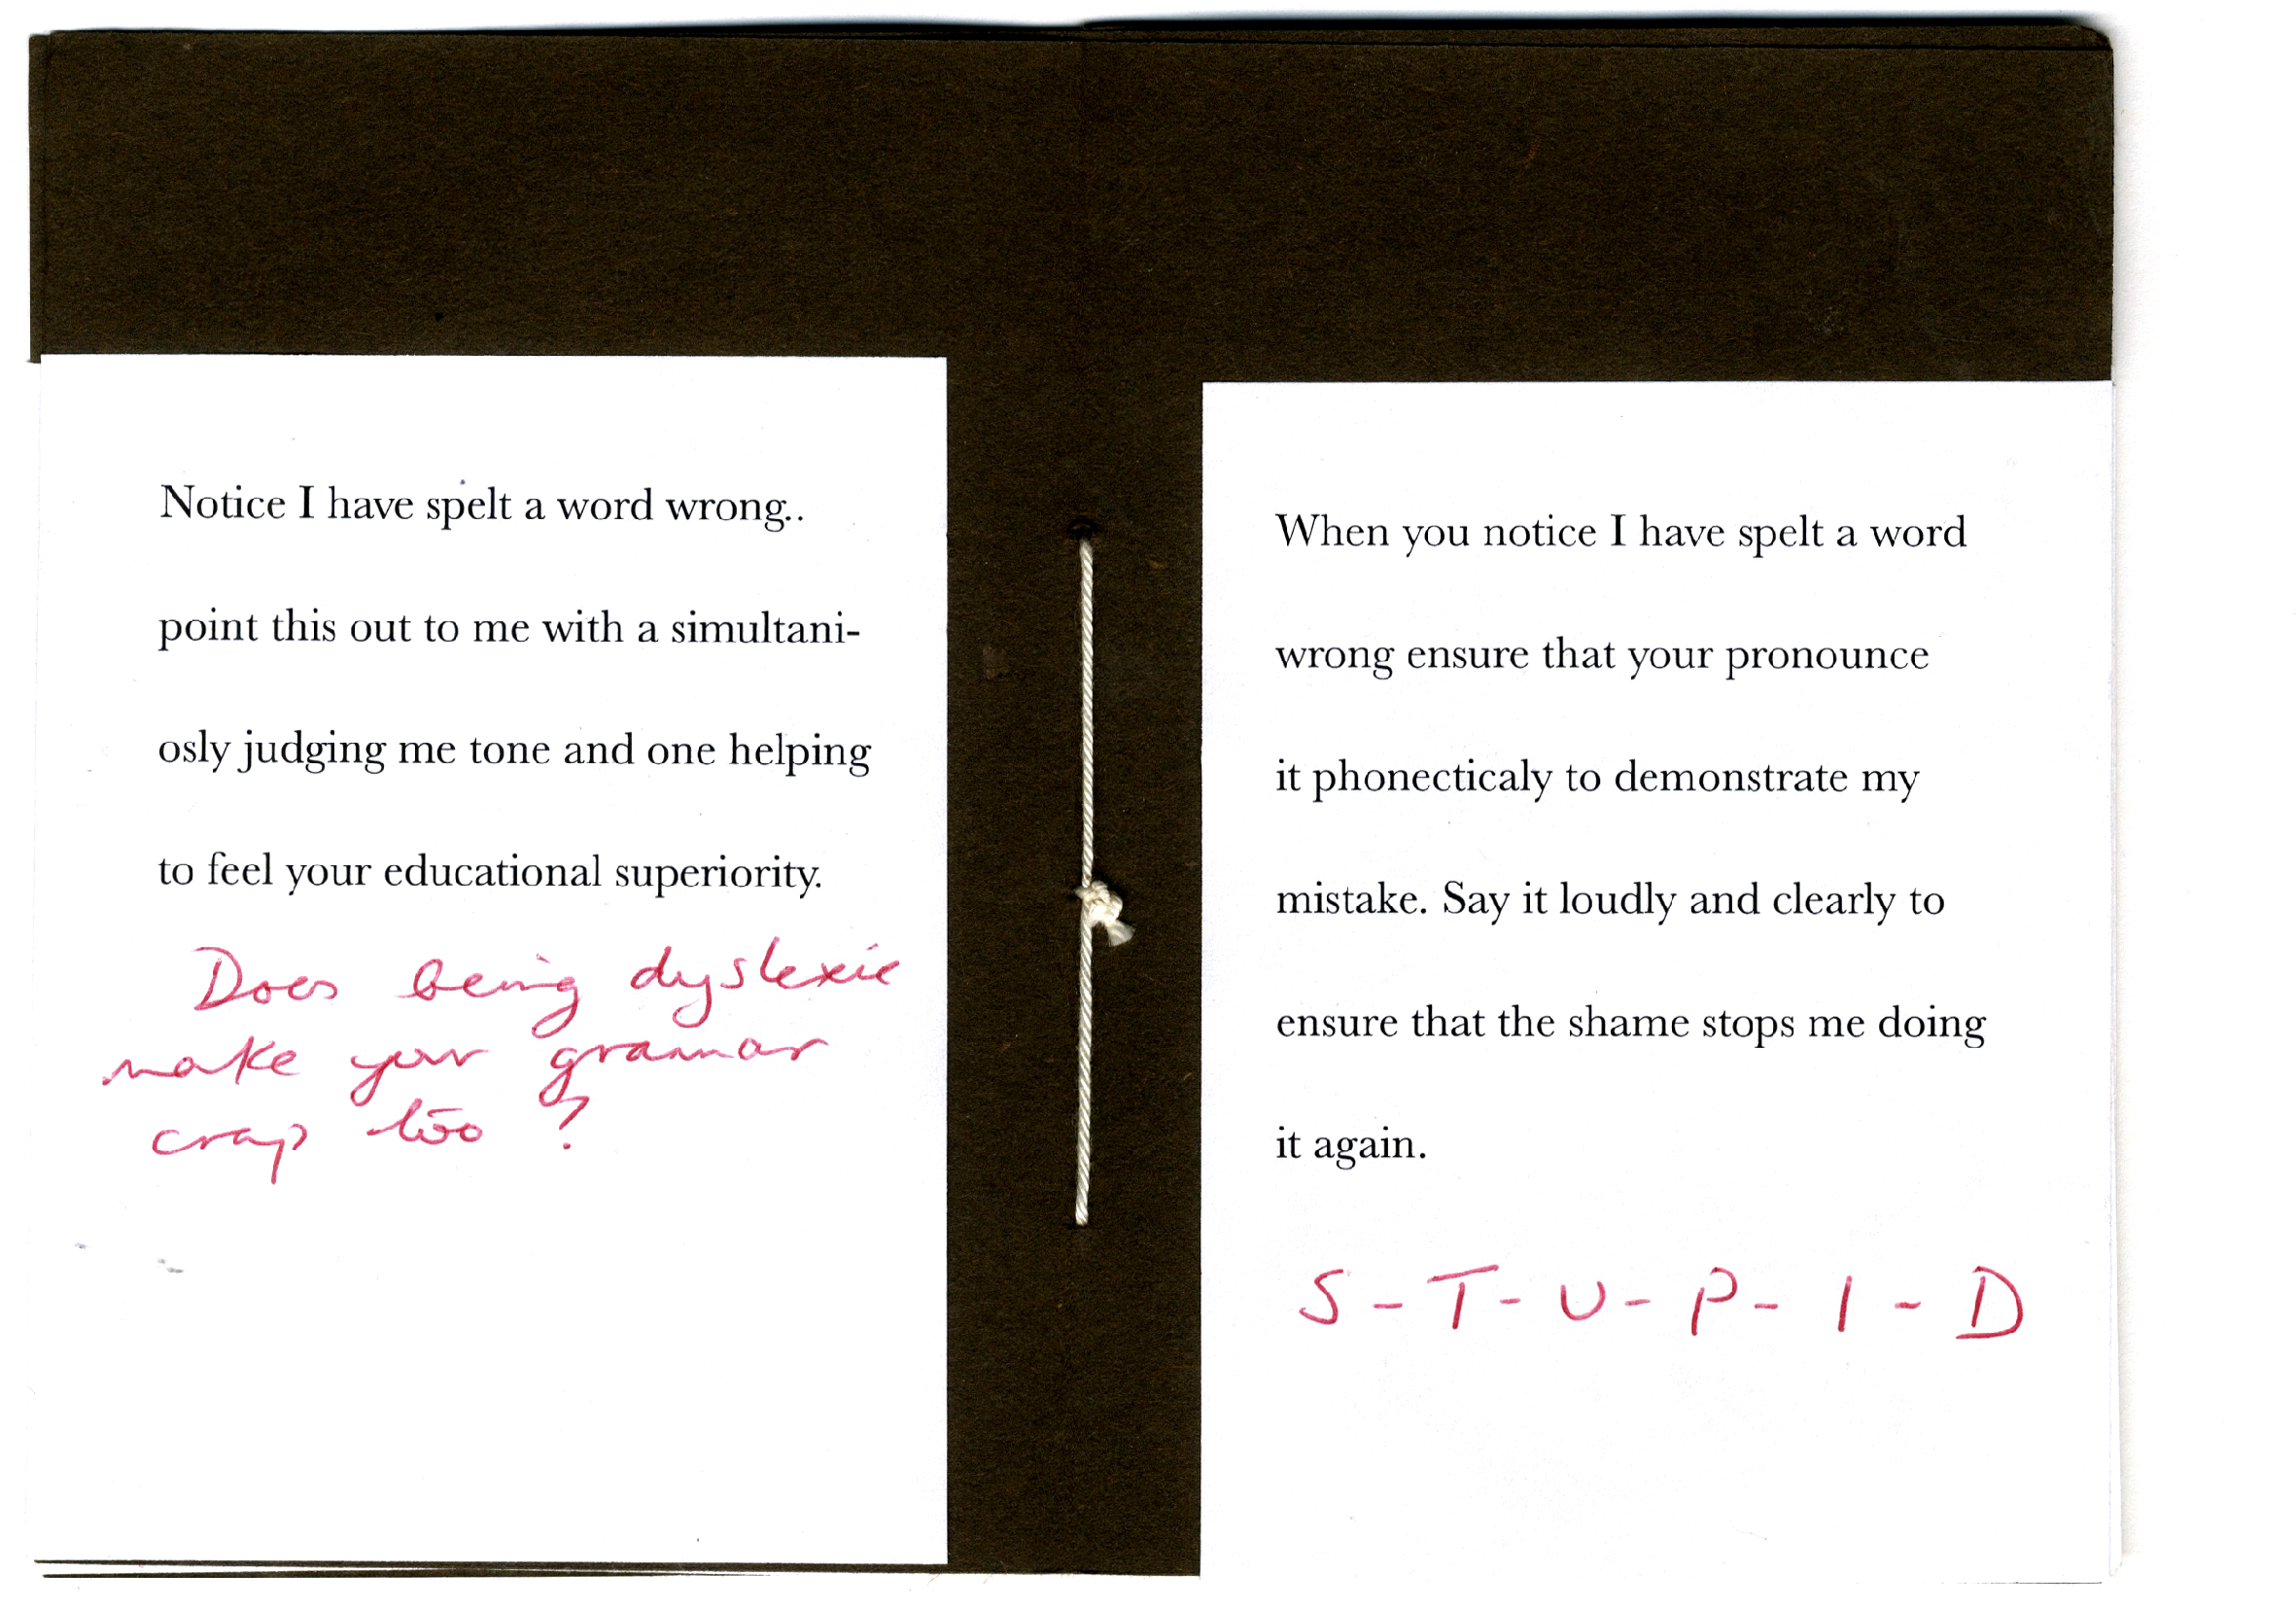 Notice I have spelt a word wrong..
point this out to me with a simultani-
osly judging me tone and one helping
to feel your educational superiority.
Does being dyslexic
make your grammar
crap too?
When you notice I have spelt a word
wrong ensure that your pronounce
it phonecticaly to demonstrate my
mistake. Say it loudly and clearly to
ensure that the shame stops me doing
it again.
S-T-U-P-I-D